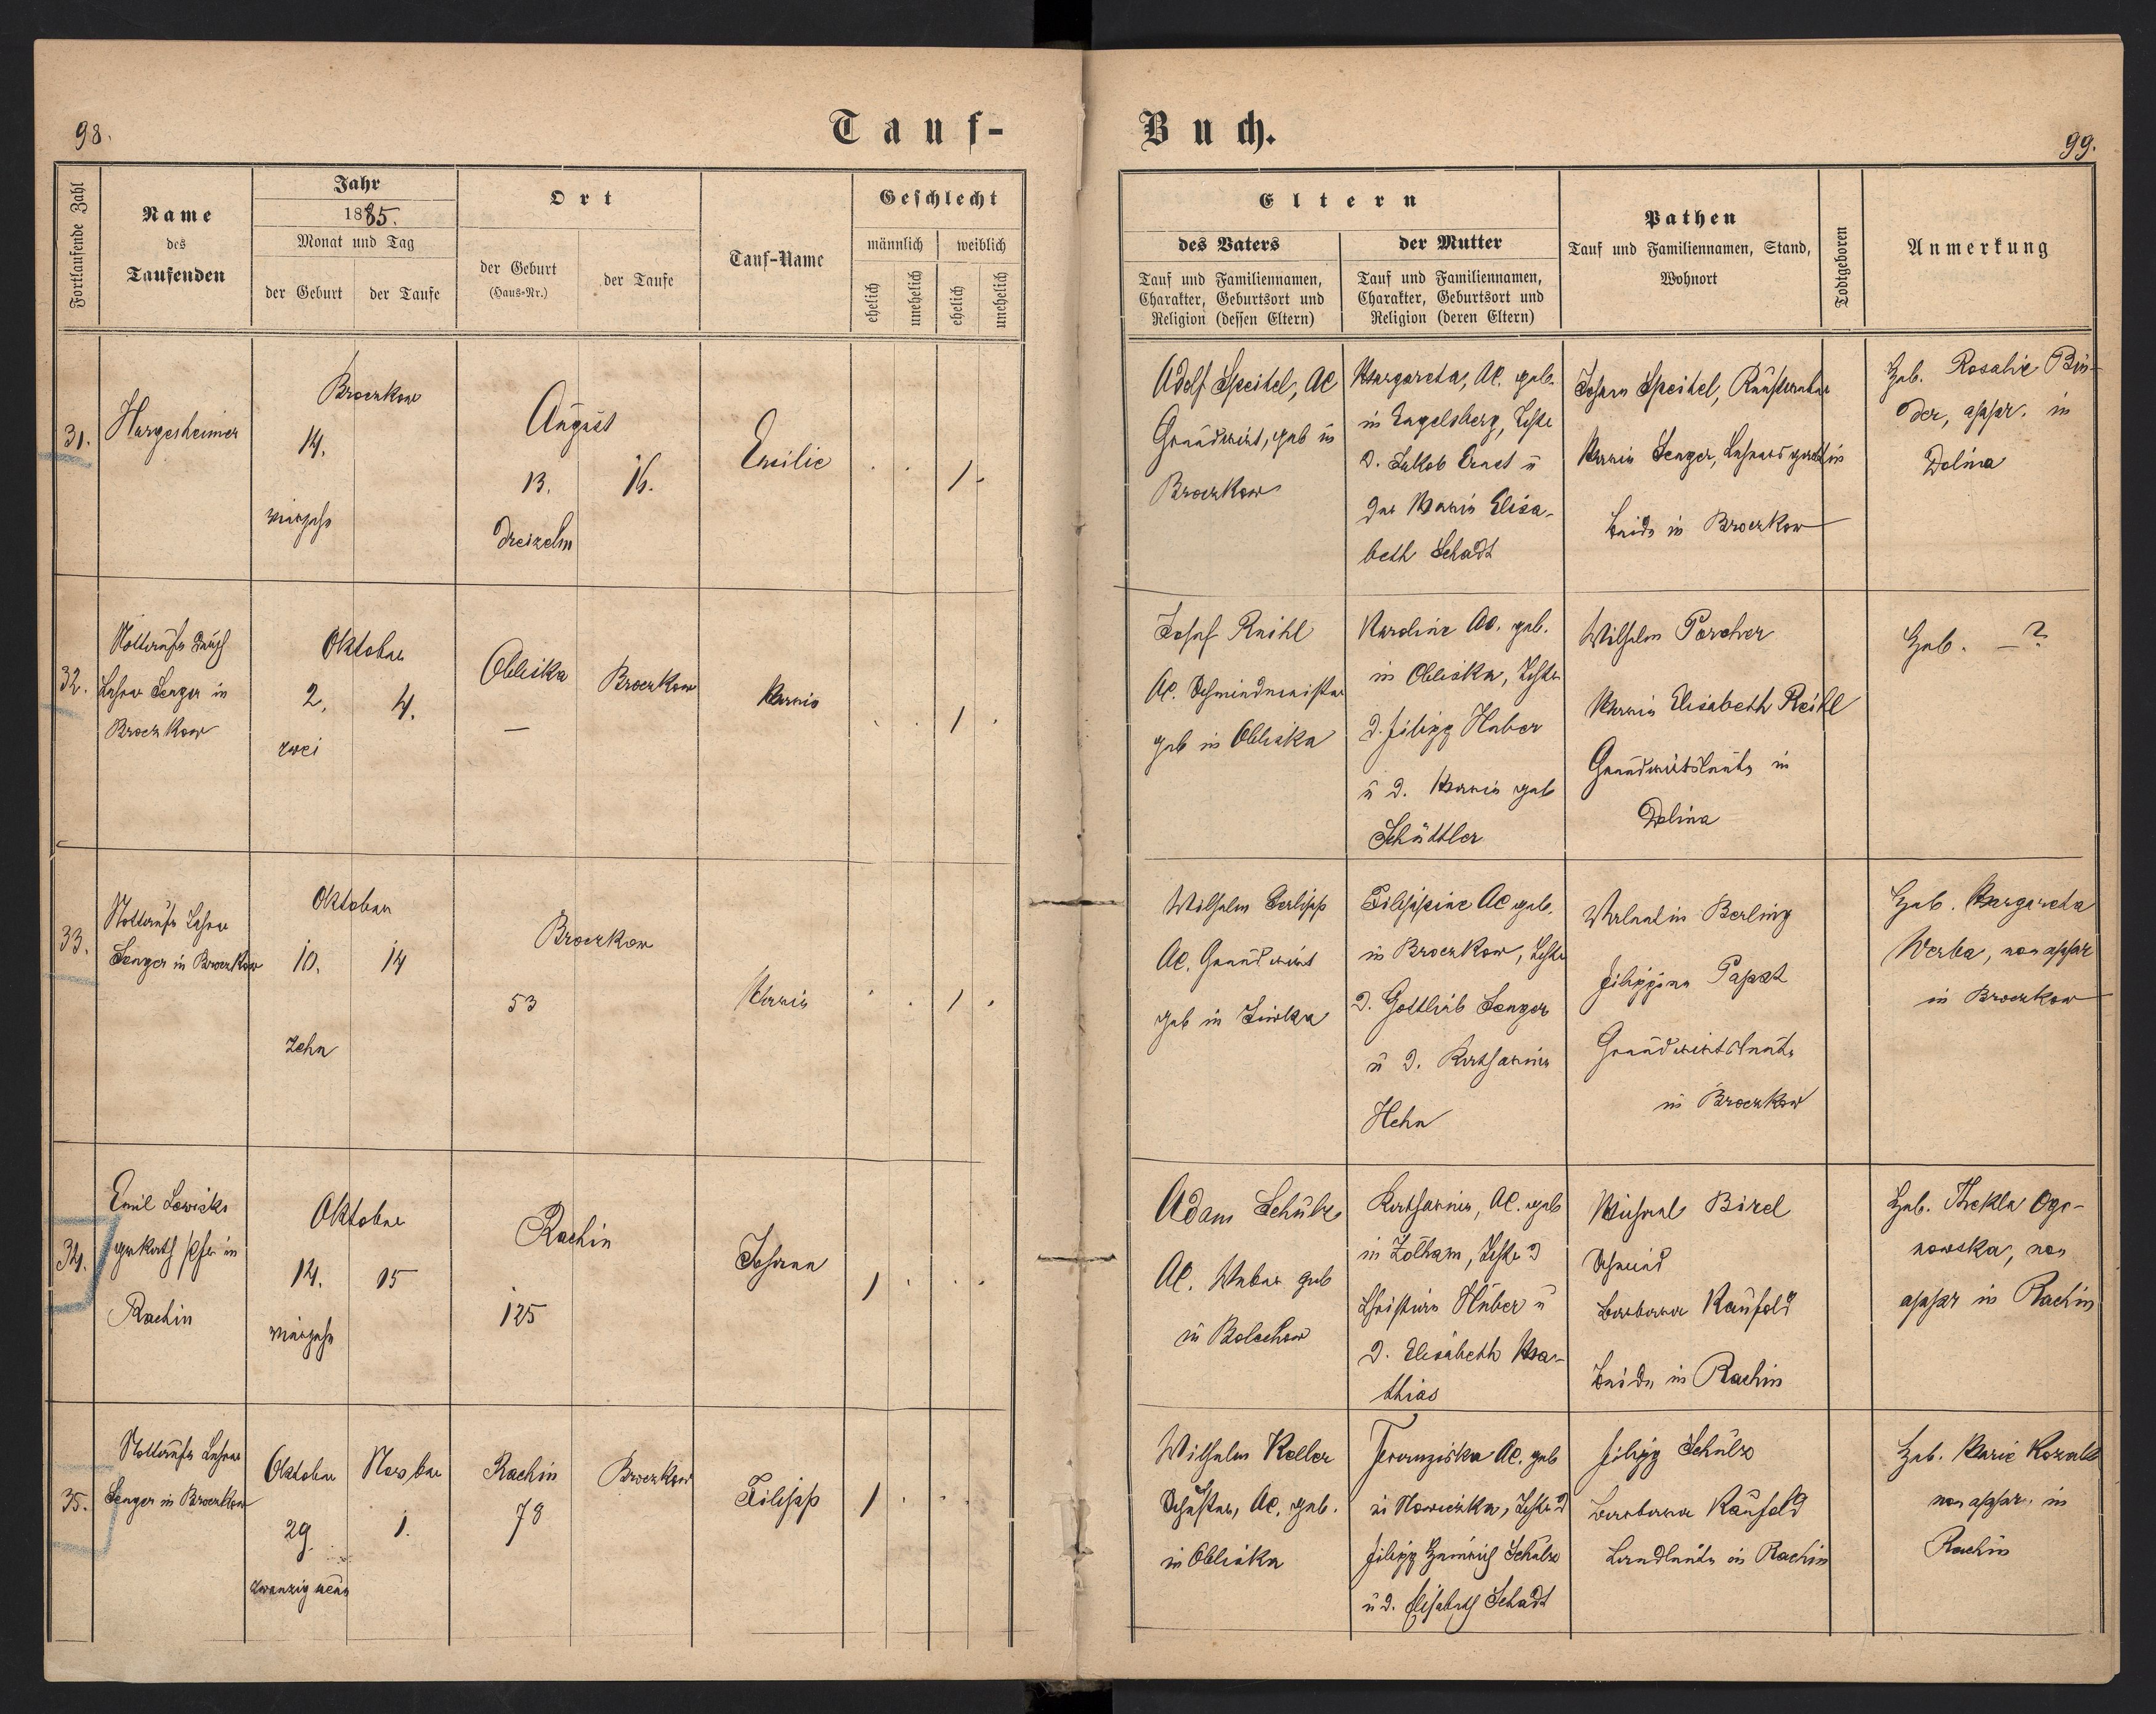 98.
Tauf-
Buch.
99.
Fortlaufende Zahl
Name
des
Taufenden
Jahr
1885.
Monat und Tag
der Geburt
der Taufe
Ort
der Geburt
(Haus-Nr.)
der Taufe
Tauf-Name
Geschlecht
männlich
weiblich
ehelich
unehelich
ehelich
unehelich
Eltern
des Vaters
Tauf und Familiennamen,
Charakter, Geburtsort und
Religion (dessen Eltern)
der Mutter
Tauf und Familiennamen,
Charakter, Geburtsort und
Religion (deren Eltern)
Pathen
Tauf und Familiennamen, Stand,
Wohnort
Todtgeboren
Anmerkung
31.
Hargesheimer
Broczkow
14.
vierzehn
August
13.
16.
dreizehn
Emilie
1
Adolf Speitel, AC
Grundwirt, geb in
Broczkow
Margareta, AC. geb.
in Engelsberg, Tochter
d. Jakob Ernst u
der Maria Elisa-
beth Schadt
Johann Speitel,
Maria Senger, Lehrersgattin
beide in Broczkow
Heb. Rosalie Bin-
der, appr. in
Dolina
32.
Nottaufe durch
Lehrer Senger in
Broczkow
Oktober
2.
4.
zwei
Obliska
—
Broczkow
Maria
1
Josef Reihl
AC. Schmiedmeister
geb in Obliska
Karoline AC. geb.
in Obliska, Tochter
d. Filipp Huber
u d. Maria geb
Schüttler
Wilhelm Porcher
Maria Elisabeth Reihl
Grundwirtsleute in
Dolina
Heb. —?
33.
Nottaufe Lehrer
Senger in Broczkow
Oktober
10.
14
zehn
Broczkow
53
Maria
1
Wilhelm
AC. Grundwirt
geb in
Filippine AC geb.
in Broczkow, Tochter
d. Gottlieb Senger
u d. Katharina
Hehn
Valentin Berling
Filippina
Grundwirtsleute
in Broczkow
Heb. Margareta
Werba, non appr
in Broczkow
34.
Emil Lewicki
gr kath Pfr in
Rachin
Oktober
14.
15
vierzehn
Rachin
125
Johann
1
Adam Schulz
AC. Weber geb
in Bolechow
Katharina, AC. geb
in, Tochter d
Christian Huber u
d. Elisabeth Ma-
thias
Michael Birel
Schmied
Barbara Kaufeld
beide in Rachin
Heb. Thekla Ogo-
nowska, non
appr in Rachin
35.
Nottaufe Lehrer
Senger in Broczkow
Oktober
29.
zwanzig neun
November
1.
Rachin
78
Broczkow
Filipp
1
Wilhelm Keller
Schuster, AC. geb.
in Obliska
Franziska AC. geb
in Nowiczka, Tochter d
Filipp Heinrich Schulz
u d. Elisabeth Schadt
Filipp Schulz
Barbara Kaufeld
Landleute in Rachin
Heb. Marie Kozak
non appr. in
Rachin